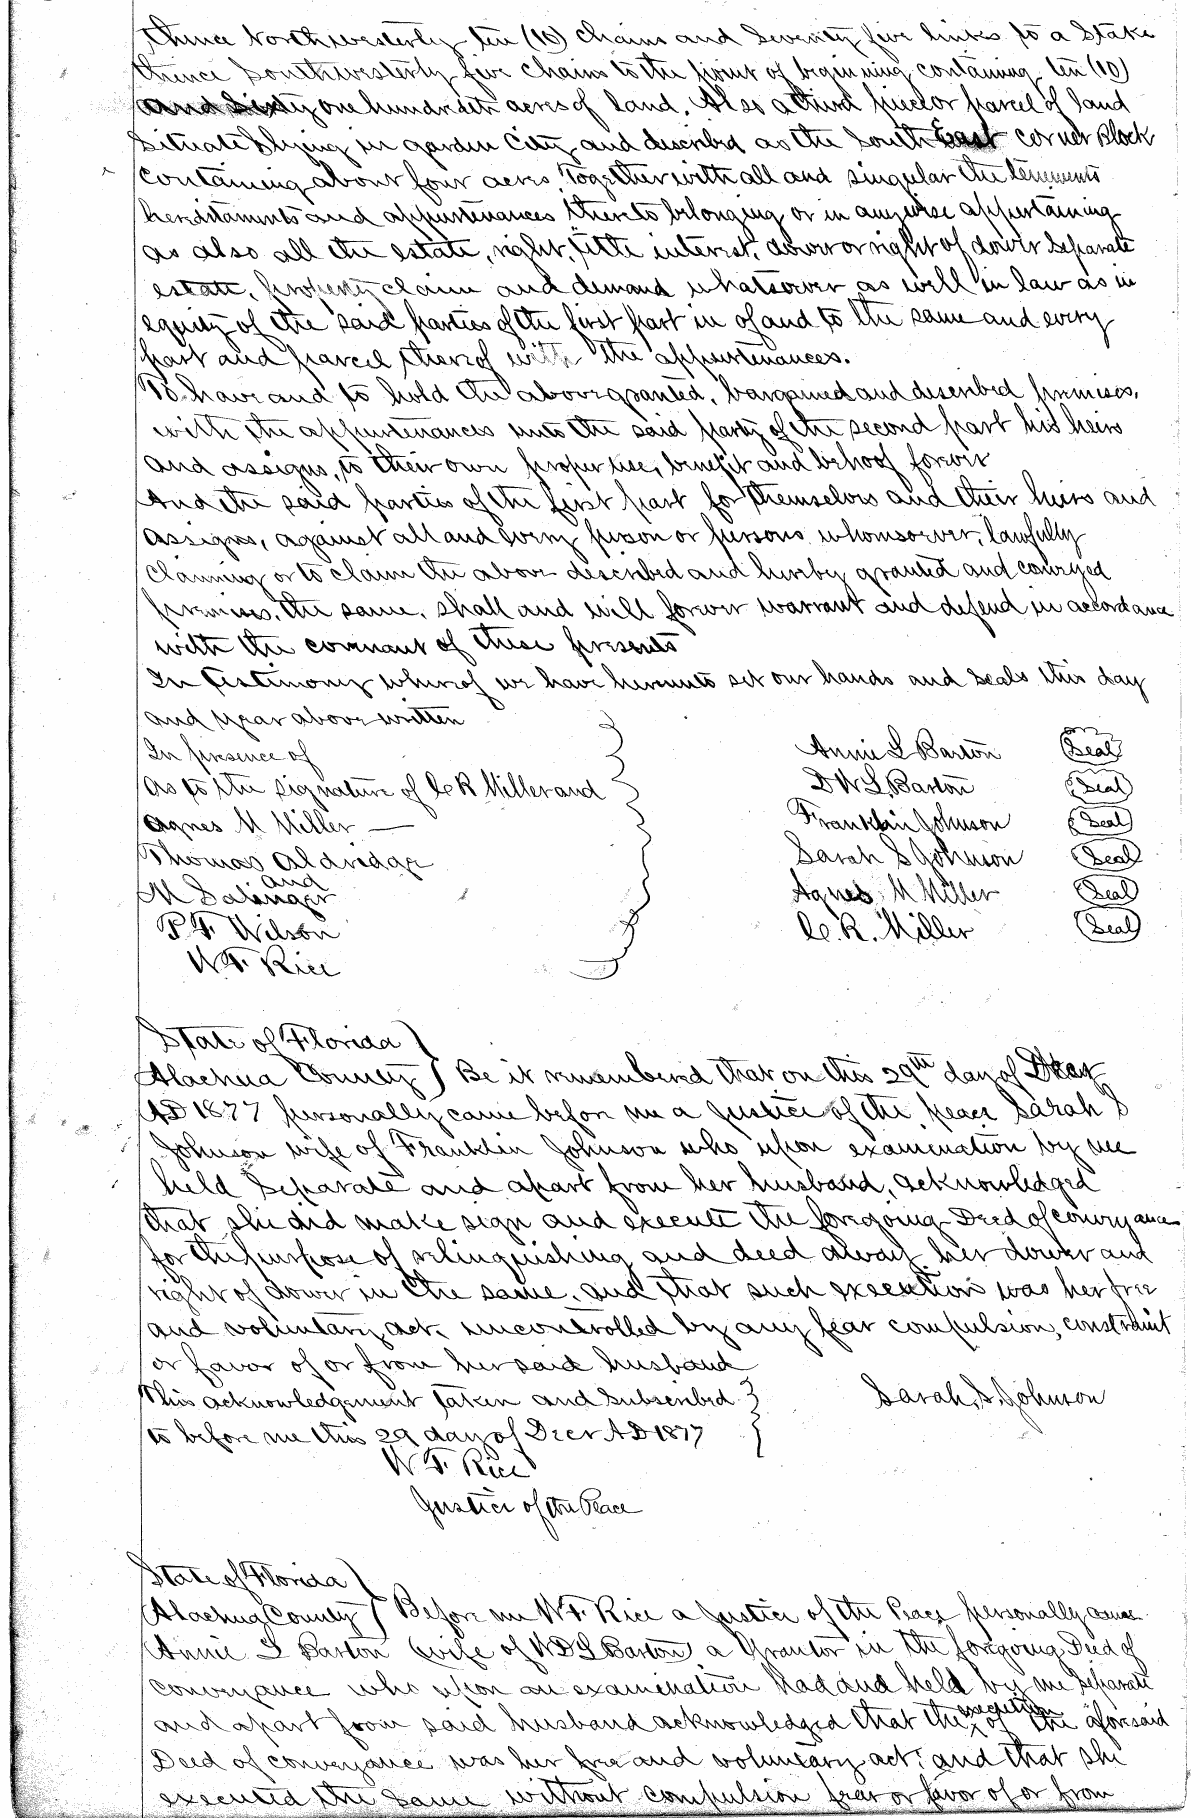 thence Northwesterly ten (10) chains and Seventy five links to a Stake
thence Southwesterly five chains to the point of beginning containing ten (10)
and Sixty one hundredth acres of land. Also a third piece or parcel of land
Situate & lying in garden City and described as the South East corner Block
containing about four acres. Together with all and singular the tenements
hereditaments and appurtenances thereto belonging or in anywise appertaining
as also all the estate, right, title interest, dower or right of dower separate
estate, property claim and demand whatsoever as well in law as in
equity of the said parties of the first part in of and to the same and every
part and parcel thereof with the appurtenances.
To have and to hold the above granted, bargained and described premises,
with the appurtenances unto the said party of the second part his heirs
and assigns, to their own proper use, benefit and behoof forever
And the said parties of the first part for themselves and their heirs and
assigns, against all and every person or persons whomsoever, lawfully
claiming or to claim the above described and hereby granted and conveyed
premises, the same, shall and will forever warrant and defend in accordance
with the covenant of these presents
In Testimony whereof we have hereunto set our hands and seals this day
and year above written
In presence of
as to the signature of C R Miller and
Agnes M Miller —
Thomas Aldridge
and
M Salinger
P. F. Wilson
W. F. Rice
Annie L Barton (Seal)
D W L Barton (Seal)
Franklin Johnson (Seal)
Sarah S Johnson (Seal)
Agnes M Miller (Seal)
C. R. Miller (Seal)
State of Florida )
Alachua County ) Be it remembered that on this 29th day of
AD 1877 personally came before me a justice of the peace Sarah S
Johnson wife of Franklin Johnson who upon examination by me
held separate and apart from her husband, acknowledged
that she did make sign and execute the foregoing Deed of conveyance
for the purpose of relinquishing and deed away her dower and
right of dower in the same, and that such execution was her free
and voluntary act, uncontrolled by any fear compulsion, constraint
or favor of or from her said husband
This acknowledgement taken and subscribed
to before me this 29 day of Decr AD 1877
Sarah, S. Johnson
W. F. Rice
Justice of the Peace
State of Florida )
Alachua County ) Before me W. F. Rice a Justice of the Peace personally came
Annie L Barton (wife of W D L Barton) a Grantor in the foregoing Deed of
conveyance who upon an examination had and held by me separate
and apart from said husband acknowledged that the execution of the aforesaid
Deed of conveyance was her free and voluntary act, and that she
executed the same without compulsion fear or favor of or from